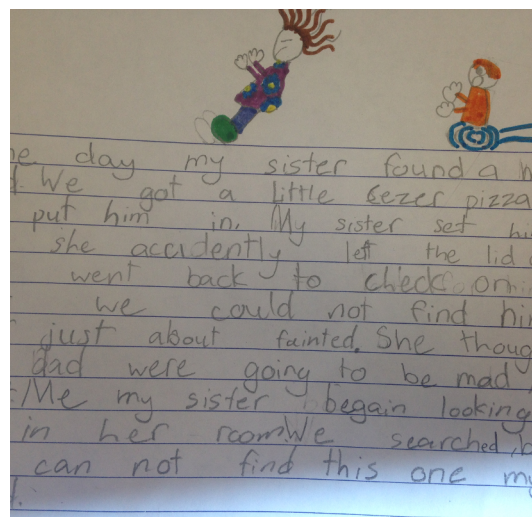 day my sister found a
We got a little cezer pizza
put him in. My sister set
she accidently left the lid
went back to check on
we could not find
just about fainted. She
dad were going to be mad
Me my sister begain looking
in her room We searched,
can not find this one